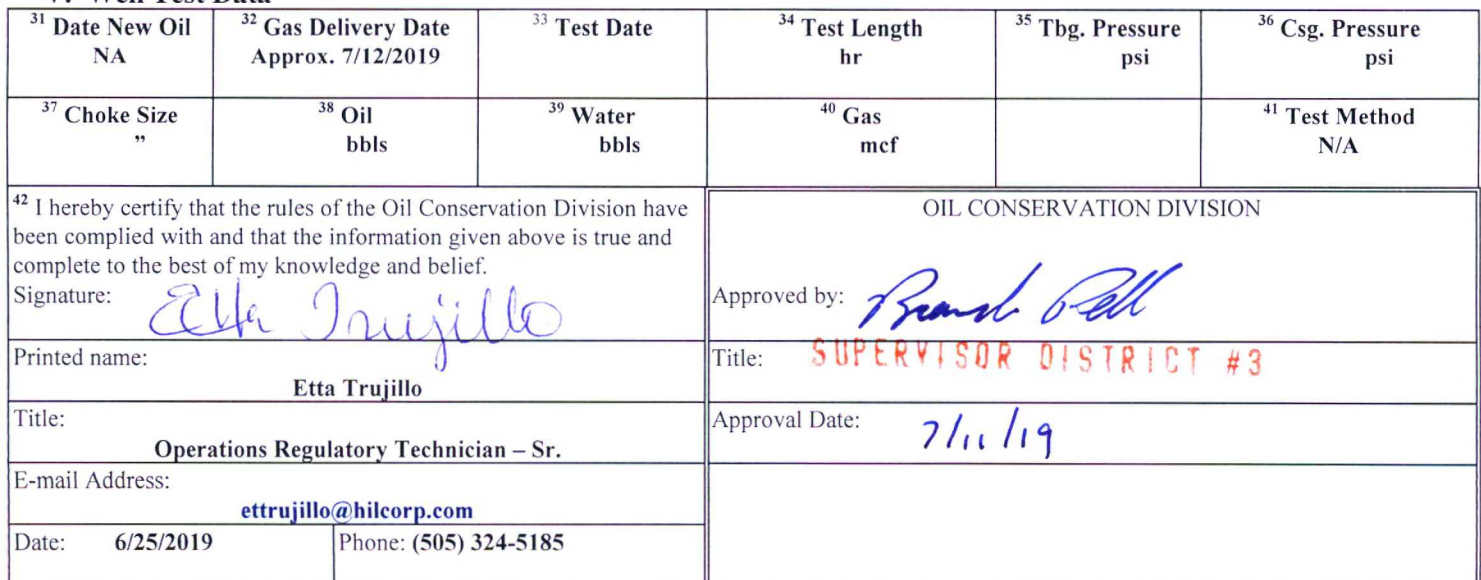 V. Well Test Data
31 Date New Oil
NA
32 Gas Delivery Date
Approx. 7/12/2019
33 Test Date
34 Test Length
hr
35 Tbg. Pressure
psi
36 Csg. Pressure
psi
37 Choke Size
”
38 Oil
bbls
39 Water
bbls
40 Gas
mcf
41 Test Method
N/A
42 I hereby certify that the rules of the Oil Conservation Division have
been complied with and that the information given above is true and
complete to the best of my knowledge and belief.
Signature: Etta Trujillo
Printed name:
Etta Trujillo
Title:
Operations Regulatory Technician – Sr.
E-mail Address:
ettrujillo@hilcorp.com
Date: 6/25/2019
Phone: (505) 324-5185
OIL CONSERVATION DIVISION
Approved by:
Title: SUPERVISOR DISTRICT #3
Approval Date: 7/11/19